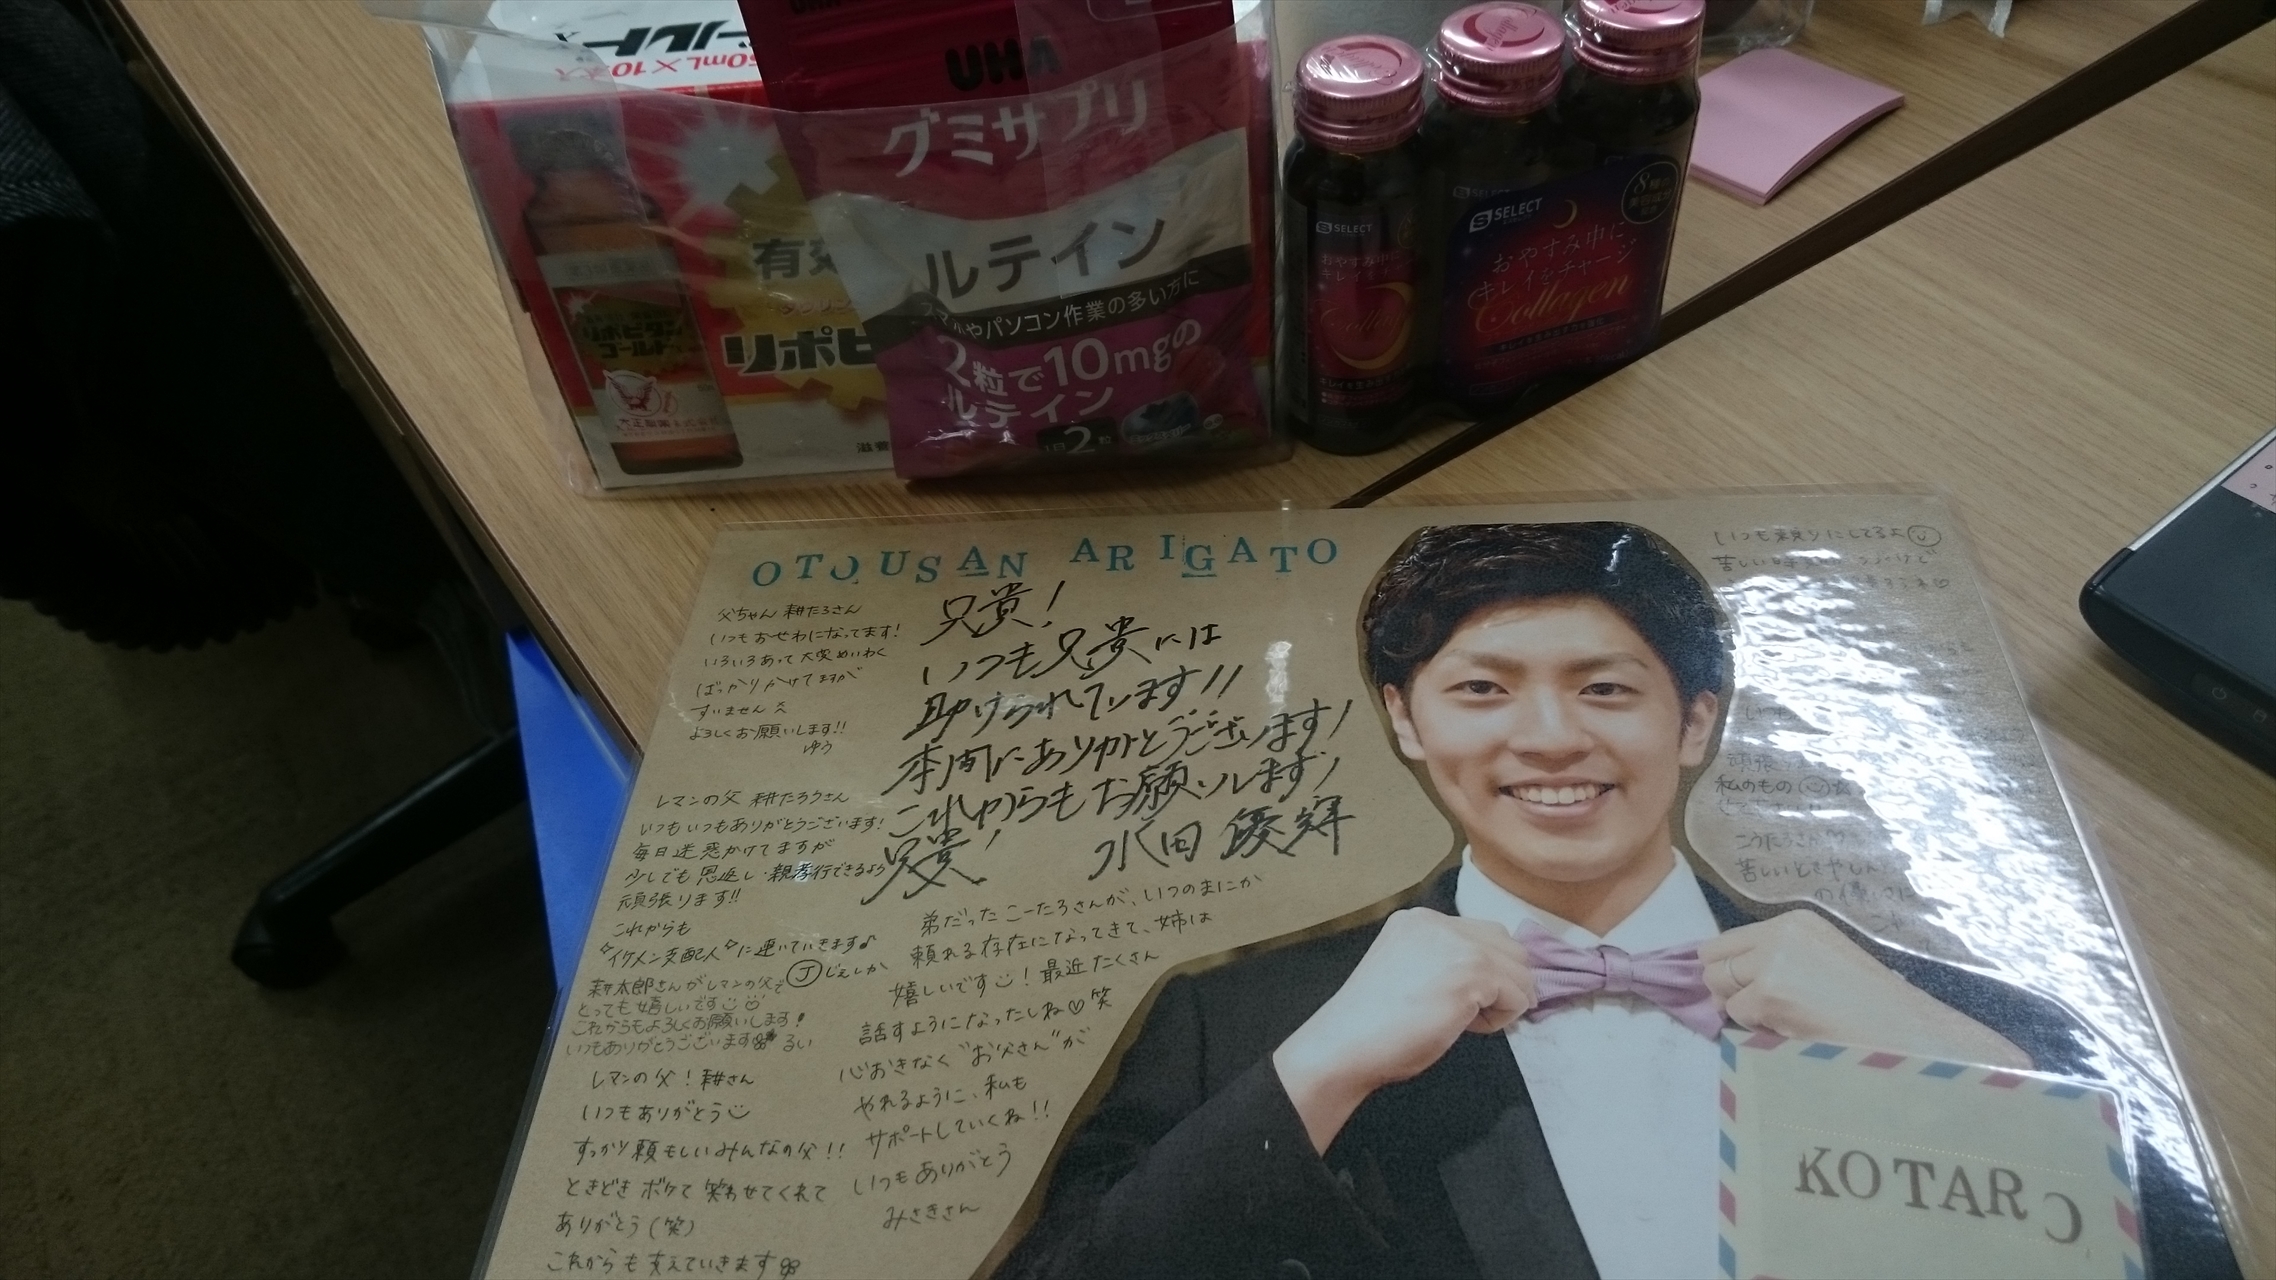 50mL×10本入
UHA
グミサプリ
ルテイン
スマホやパソコン作業の多い方に
2粒で10mgの
ルテイン
1日2粒
有効
リポビ
リポビタン
ゴールド
大正製薬株式会社
滋養
SELECT
おやすみ中に
キレイをチャージ
SELECT
おやすみ中に
キレイをチャージ
Collagen
8種の
美容成分
OTOUSAN ARIGATO
父ちゃん 耕たろさん
いつもおせわになってます!
いろいろあって大変めいわく
ばっかりかけてますが
すいません
よろしくお願いします!!
ゆう
兄貴!
いつも兄貴には
助けられています!!
本間にありがとうございます!
これからもお願いします!
兄貴! 水田 優輝
レマンの父 耕たろうさん
いつもいつもありがとうございます!
毎日迷惑かけてますが
少しでも恩返し・親孝行できるよう
頑張ります!!
これからも
"イケメン支配人"に運いていきます♪
Jじぇしか
耕太郎さんがレマンの父で
とっても嬉しいです
これからもよろしくお願いします!
いつもありがとうございます るい
レマンの父!耕さん
いつもありがとう
すっかり頼もしいみんなの父!!
ときどきボケて笑わせてくれて
ありがとう(笑)
これからも支えていきます
弟だったこーたろさんが、いつのまにか
頼れる存在になってきて、姉は
嬉しいです!最近たくさん
話すようになったしね♡笑
心おきなく"お父さん"が
やれるように、私も
サポートしていくね!!
いつもありがとう
みさきさん
いつも頼りにしてるよ
苦しい時
私のもの
こうたろうさん
苦しいとき
KOTARO